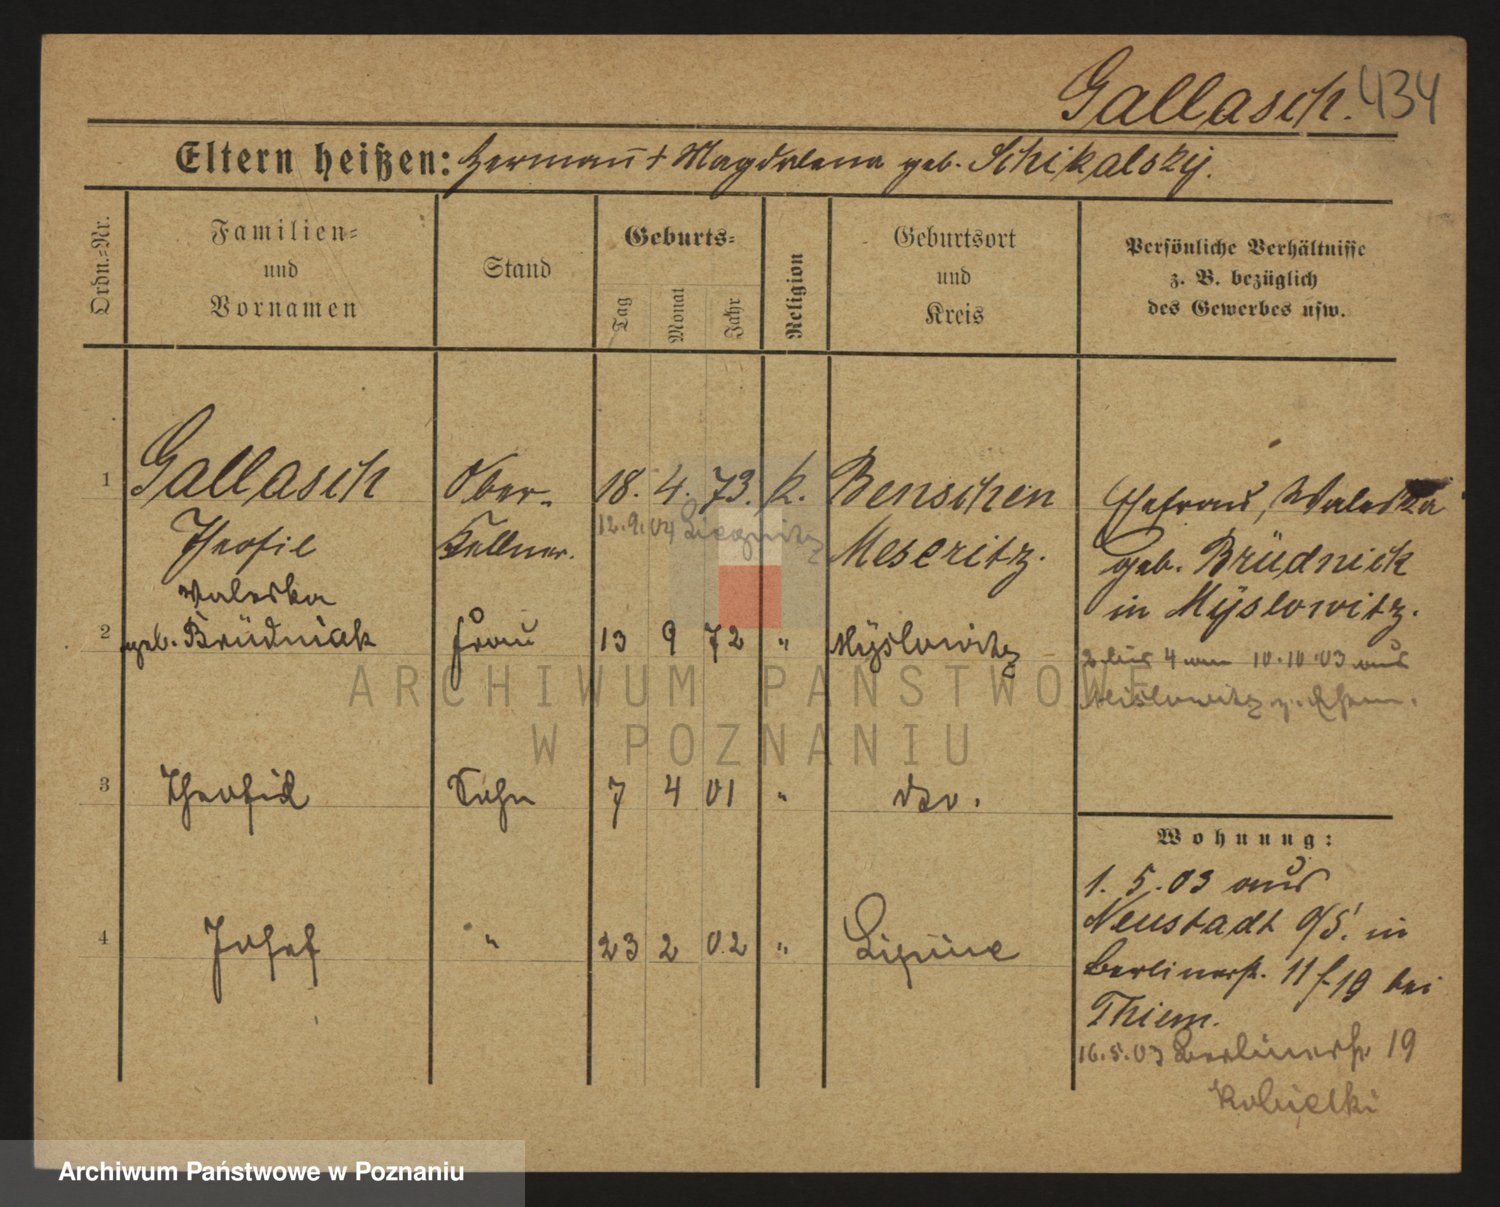 Gallasch. 434
Eltern heißen: Hermann + Magdalena geb. Schikalsky.
Ordn.-Nr.
Familien-
und
Vornamen
Stand
Geburts-
Tag
Monat
Jahr
Religion
Geburtsort
und
Kreis
Persönliche Verhältnisse
z. B. bezüglich
des Gewerbes usw.
1 Gallasch Ober- 18. 4. 73. k. Benschen
12.9.04 Liegnitz
Theofil Kellner. Meseritz.
Ehefrau, Waleska
geb. Brüdnick
in Mÿslowitz.
Waleska
2 geb. Brüdniak Frau 13 9 72 " Mÿslowitz
2 bis 4 am 10.10.03 aus
Meislowitz z. Ehem.
3 Theofil Sohn 7 4 01 " dto.
4 Josef " 23 2 02 " Lipine
Wohnung:
1. 5. 03 aus
Neustadt O/S. in
Berlinerstr. 11 f. 19 bei
Thiem.
16.5.03 Berlinerstr 19
Kobielski
ARCHIWUM PAŃSTWOWE
W POZNANIU
Archiwum Państwowe w Poznaniu